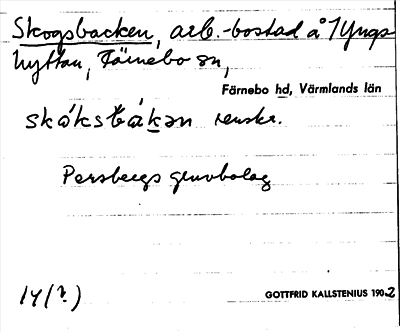 Skogsbacken, arb.-bostad å Yngs
hyttan, Färnebo sn,
Färnebo hd, Värmlands län
skáksbákən renskr.
Persbergs gruvbolag
14(?)
GOTTFRID KALLSTENIUS 1902